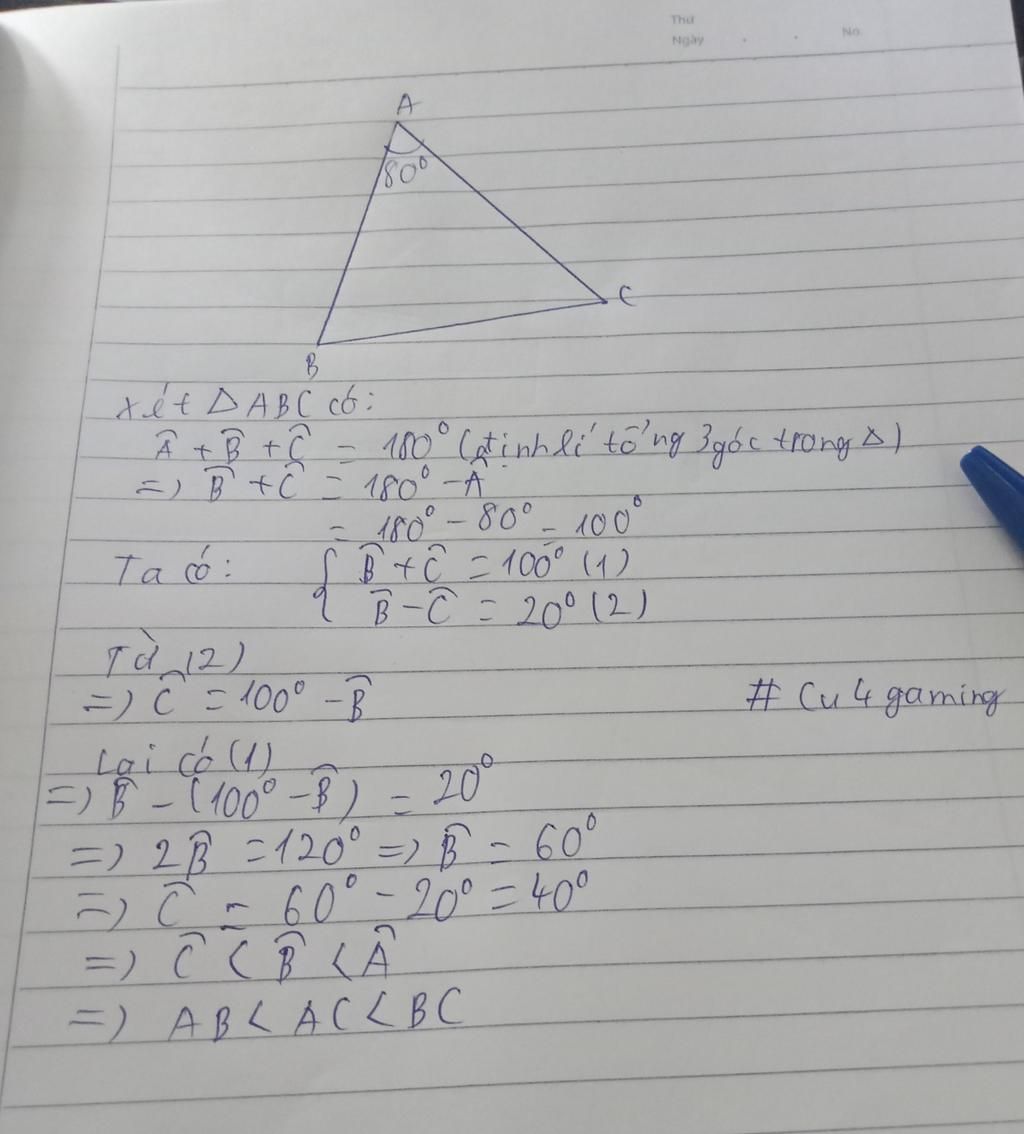 Thứ
Ngày . . No.
A
80⁰
C
B
Xét △ABC có:
Â + B̂ + Ĉ = 180⁰ (định lí tổng 3 góc trong △)
=> B̂ + Ĉ = 180⁰ - Â
= 180⁰ - 80⁰ = 100⁰
Ta có: { B̂ + Ĉ = 100⁰ (1)
B̂ - Ĉ = 20⁰ (2)
Từ (2)
=> Ĉ = 100⁰ - B̂
# Cu 4 gaming
Lại có (1)
=> B̂ - (100⁰ - B̂) = 20⁰
=> 2B̂ = 120⁰ => B̂ = 60⁰
=> Ĉ = 60⁰ - 20⁰ = 40⁰
=> Ĉ < B̂ < Â
=> AB < AC < BC